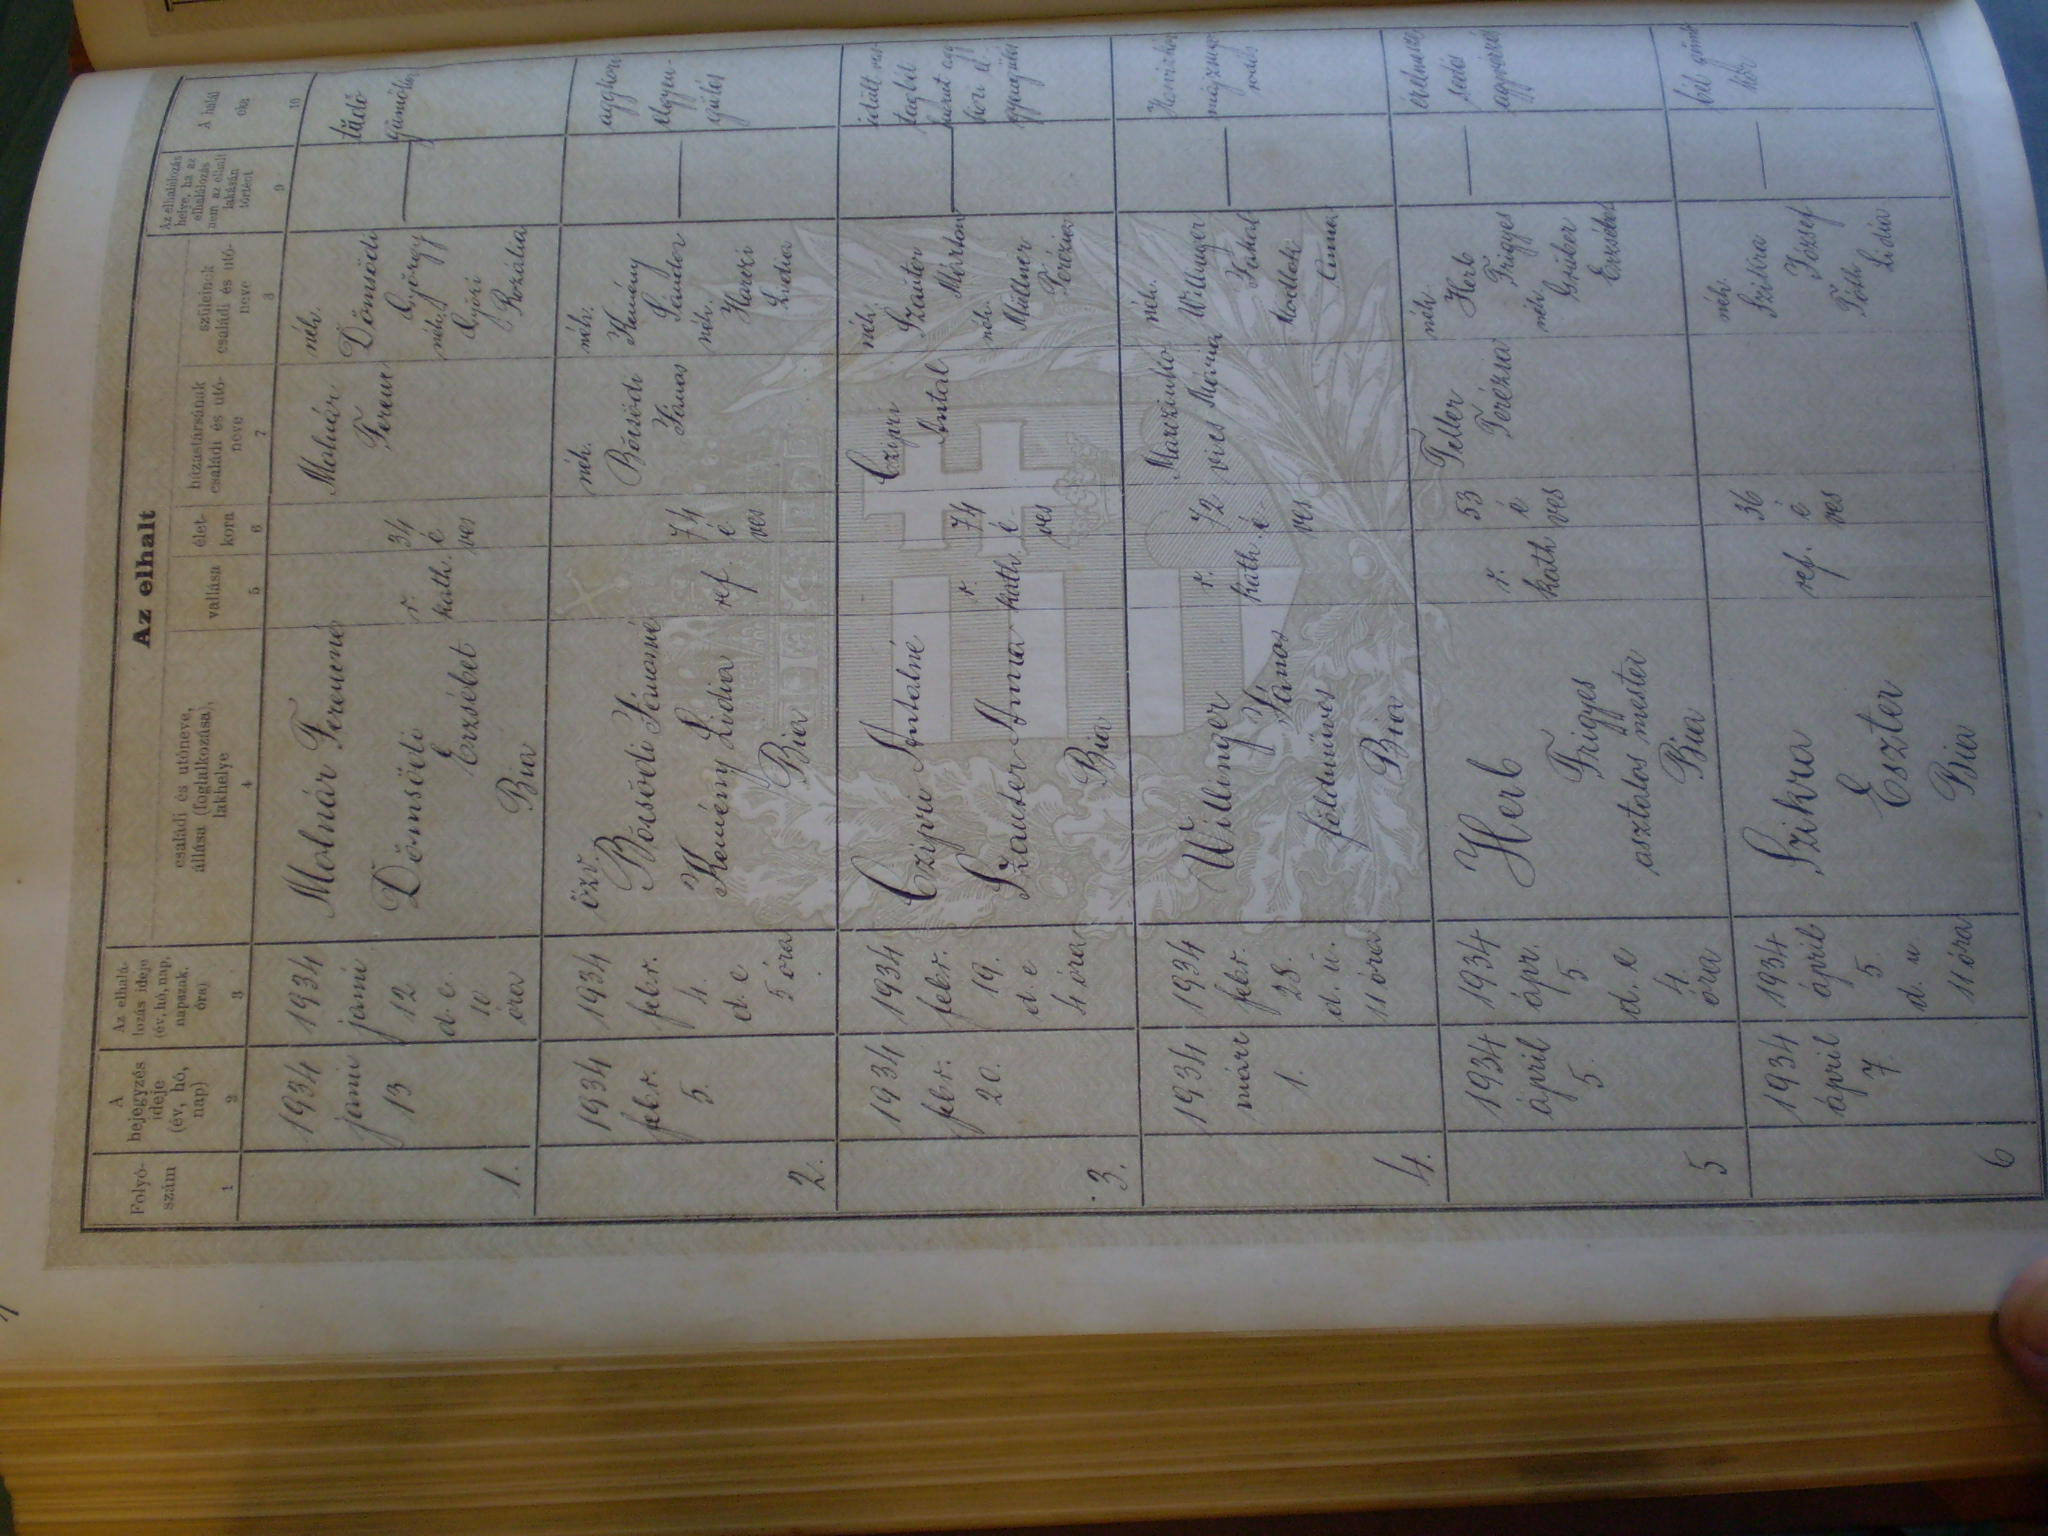 Az elhalt
Folyó-
szám
A
bejegyzés
ideje
(év, hó,
nap)
Az elhalá-
lozás ideje
(év, hó, nap,
napszak,
óra)
családi és utóneve,
állása (foglalkozása),
lakhelye
vallása
élet-
kora
házastársának
családi és utó-
neve
szüleinek
családi és utó-
neve
Az elhalálozás
helye, ha az
elhalálozás
nem az elhalt
lakásán
történt
A halál
oka
1
2
3
4
5
6
7
8
9
10
1.
1934
13
1934
12
d. e.
10
óra
Molnár Ferencné
Dömsödi
Erzsébet
Bia
r.
kath.
34
é
ves
Molnár
Ferenc
néh.
Dömsödi
György
néh.
Győri
Rozália
—
tüdő
gümőkór
2.
1934
febr.
5.
1934
febr.
4.
d. e
5 óra
özv.
Bölsödi Jánosné
Kemény Lidia
Bia
ref.
74
é
ves
néh.
János
néh.
Kemény
Sándor
néh.
Lidia
—
aggkori
elgyen-
gülés
3.
1934
febr.
20.
1934
febr.
19.
d. e.
4 óra
Czipri Antalné
Szauter Anna
Bia
r.
kath.
74
é
ves
Czipri
Antal
néh.
Szauter
Márton
néh.
Müllner
Terézia
—
idült
4.
1934
márc
1.
1934
febr.
28.
d. u.
11 óra
Willinger
János
földműves
Bia
r.
kath.
72
é
ves
Marczinkó
vics Mária
néh.
Willinger
Jakab
Anna
—
5
1934
április
5.
1934
ápr.
5.
d. e
4.
óra
Herb
Frigyes
asztalos mester
Bia
r.
kath
53
é
ves
Feller
Terézia
néh.
Herb
Frigyes
néh.
Gruber
Erzsébet
—
érelmesze
sedés
agyvérzés
6
1934
április
7.
1934
április
5.
d. u
11 óra
Szikra
Eszter
Bia
ref.
36
é
ves
néh.
Szikra
József
Tóth
Lidia
—
bél gümő
kór